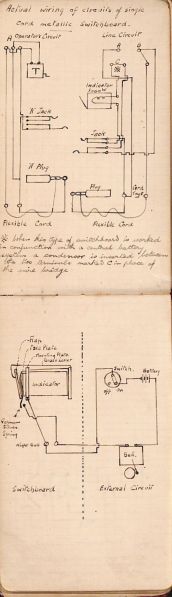 Actual wiring of circuits of single
Cord metallic Switchboard.
Operators Circuit
Line Circuit
A
A
B
T
Indicator
C
"A" Jack
Jack
"A" Plug
Plug
Cord
Flexible Cord
Flexible Cord
When this type of switchboard is worked
in conjunction with a central battery
system a condenser is inserted between
the two terminals marked C in place of
the wire bridge
Flap
Face Plate
Indicator
German
Silver
Spring
Night Bell
Switch
Battery
off
on
Bell
Switchboard
External Circuit